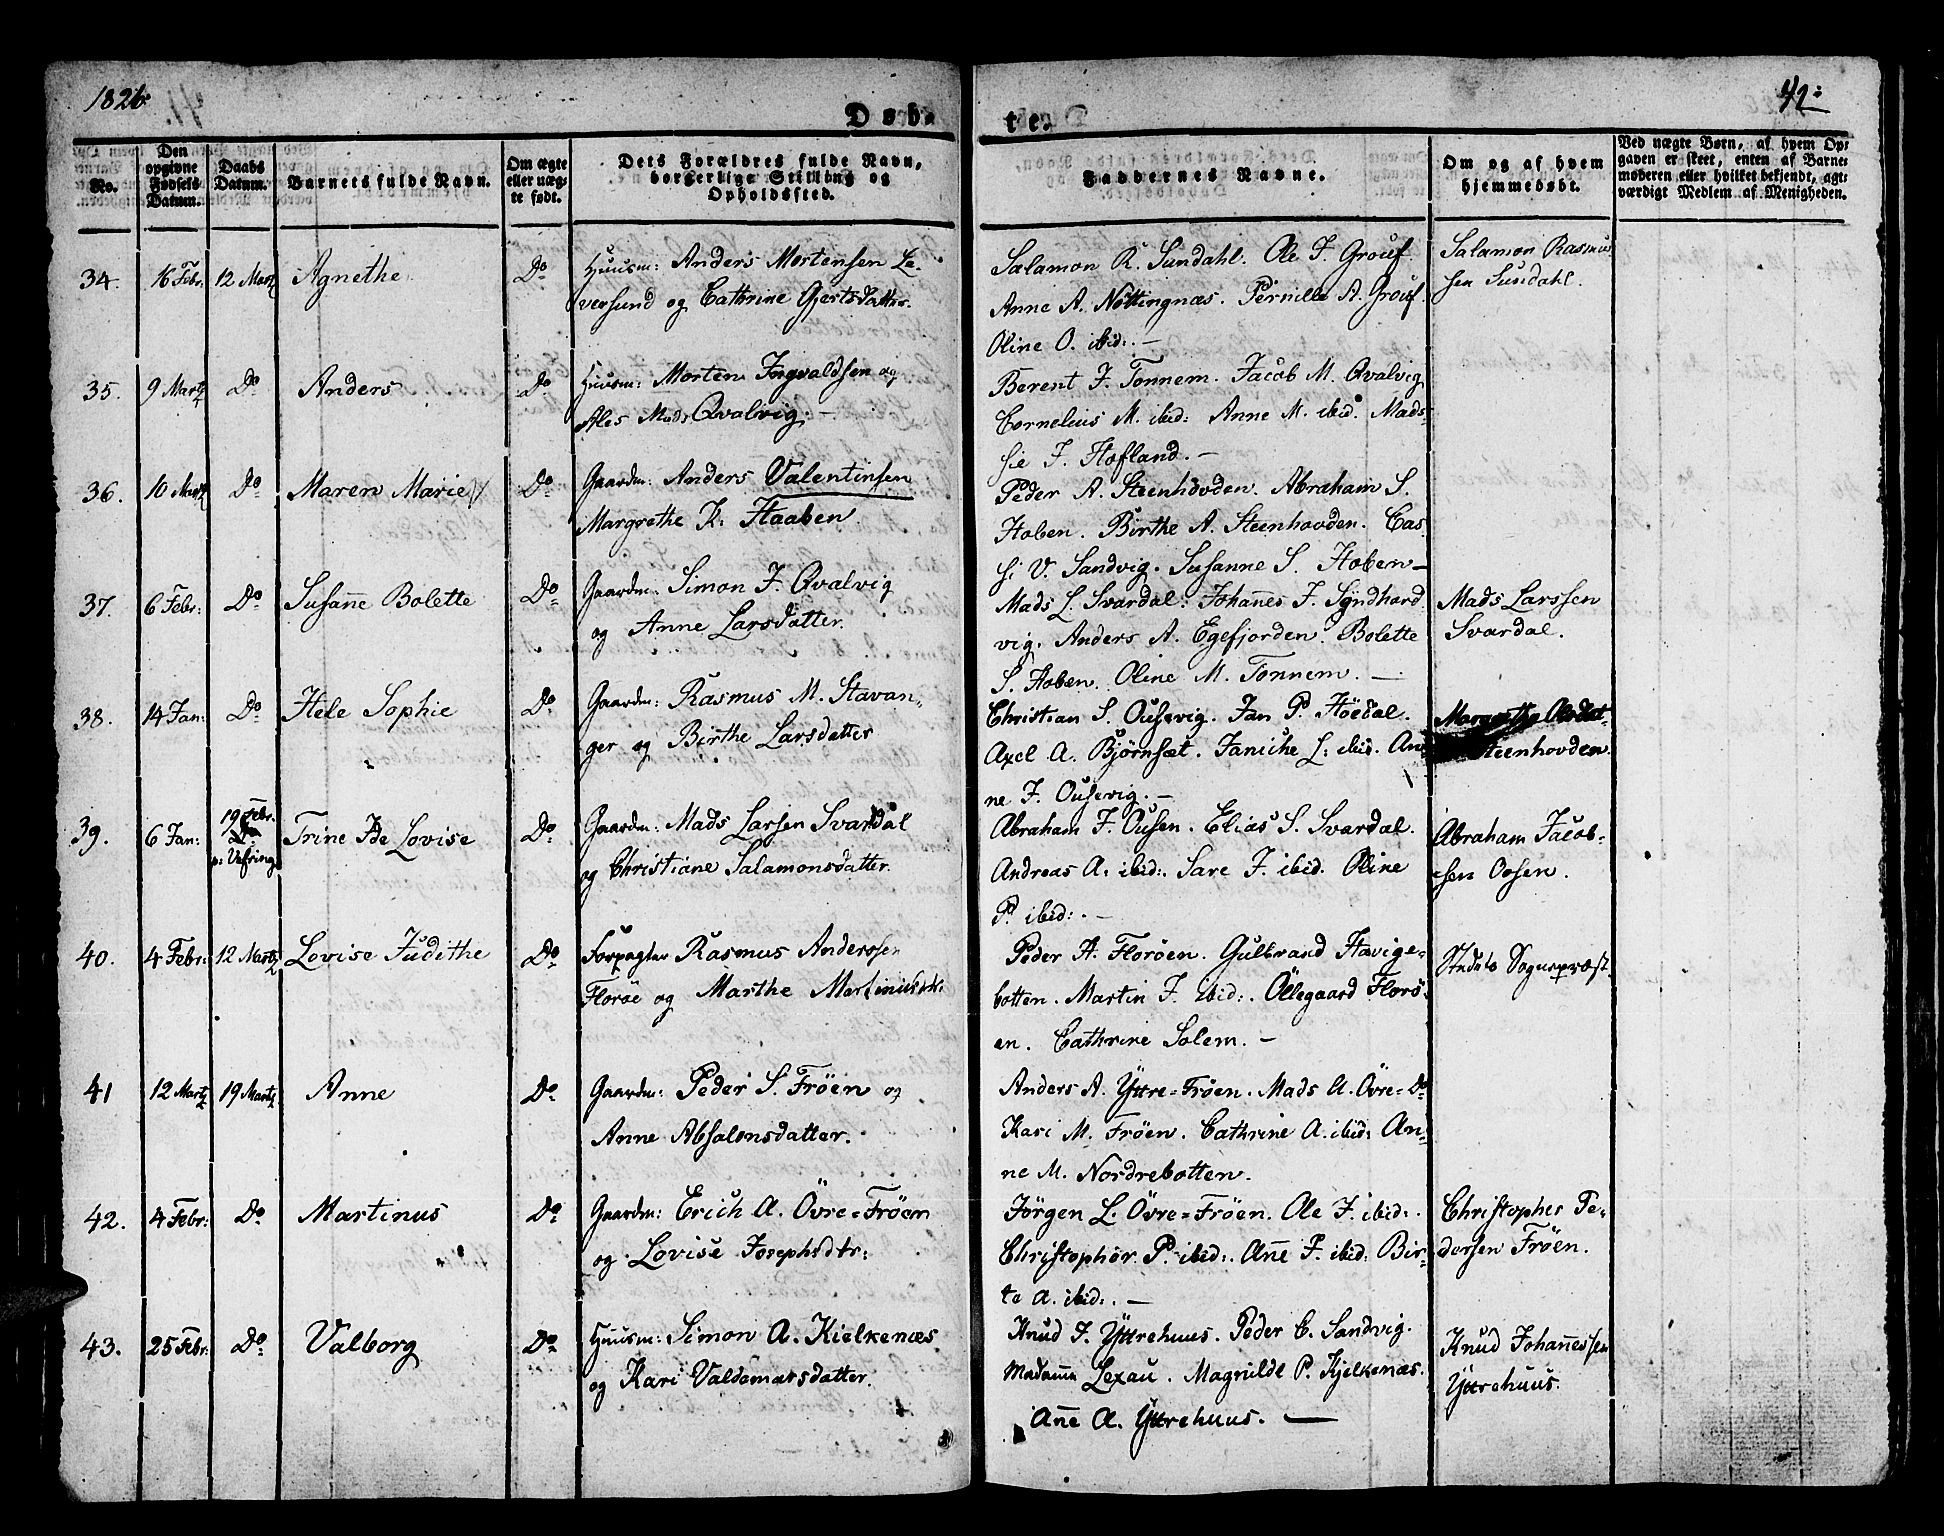 1826
42
Døb-
te.
No.
Den opgivne Fødsels Datum.
Daabs Datum.
Barnets fulde Navn.
Om ægte eller uægte født.
Dets Forældres fulde Navn, borgerlige Stilling og Opholdssted.
Faddernes Navne.
Om og af hvem hjemmedøbt.
Ved uægte Børn, af hvem Opgaven er skeet, enten af Barnemoderen eller hvilket bekjendt, agtværdigt Medlem af Menigheden.
34. 16 Febr. 12 Martz Agnethe Do
Huusm: Anders Mortensen Le-
versund og Cathrine Gjertsdatter.
Salamon R. Sundahl. Ole J. Grouf
Anne A. Nöttingnæs. Pernille A. Grouf
Oline O. ibid:. —
Salamon Rasmus
sen Sundahl.
35. 9 Martz Do Anders Do
Huusm: Morten Ingvaldsen og
Ales Mads Qvalvig. —
Berent J. Tonnem. Jacob M. Qvalvig
Cornelius M. ibid: Anne M. ibid. Mads-
sie J. Hofland. —
36. 10 Martz Do Maren Marie Do
Gaardm: Anders Valentinsen
Margrethe K. Haaben.
Peder A. Steenhovden. Abraham S.
Hoben. Birthe A. Steenhovden. Cas
si V. Sandvig. Susanne S. Hoben —
37. 6 Febr: Do Susane Bolette Do
Gaardm: Simon J. Qvalvig
og Anne Larsdatter.
Mads L. Svardal. Johannes J. Syndhard
vig. Anders A. Egefjorden. Bolette
S. Hoben. Oline M. Tonnem. —
Mads Larssen
Svardal.
38. 14 Jan: Do Hele Sophie Do
Gaardm: Rasmus M. Stavan-
ger og Birthe Larsdatter
Christian S. Ousevig. Jan P. Höedal.
Axel A. Bjørnset. Janiche L: ibid. An
ne J. Ousevig. —
Margrethe Olsdat-
Steenhovden.
39. 6 Jan: 19 Febr. p: Vefring Trine Ide Lovise Do
Gaardm: Mads Larsen Svardal
og Christiane Salamonsdatter.
Abraham J. Ousen. Elias S. Svardal.
Andreas A. ibid:. Sare J. ibid. Oline
P. ibid:. —
Abraham Jacob-
sen Oosen.
40. 4 Febr: 12 Martz Lovise Judithe Do
Forpagter Rasmus Anderssen
Florøe og Marthe
Peder A. Florøen. Gulbrand Havige-
botten. Martin J. ibid:. Öllegaard Florö-
en. Cathrine Solem. —
Stedets Sognepræst.
41 12 Martz 19 Martz Anne Do
Gaardm: Peder S. Fröen og
Anne Absalonsdatter.
Anders A. Yttre=Fröen. Mads A. Övre=Do
Kari M. Fröen. Cathrine A. ibid: An-
ne M. Nordrebotten.
42. 4 Febr: Do Martinus Do
Gaardm: Erich A. Övre=Fröen
og Lovise Josephsdtr:
Jörgen L. Övre=Fröen. Ole J. ibid:.
Christophör P. ibid:. Ane J. ibid: Bir-
te A. ibid:. —
Christopher Pe-
dersen Fröen.
43. 25 Febr: Do Valborg Do
Huusm: Simon A. Kielkenæs
og Kari Valdemarsdatter.
Knud J. Yttrehuus. Peder C. Sandvig.
Madame Lexau. Magnilde P. Kjelkenæs.
Ane A. Yttrehuus. —
Knud Johanessen
Yttrehuus.